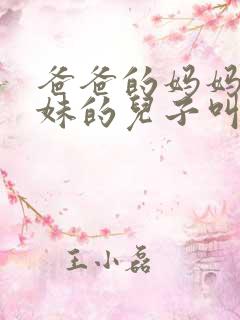 爸爸的妈妈
妹的兒子叫
王小磊